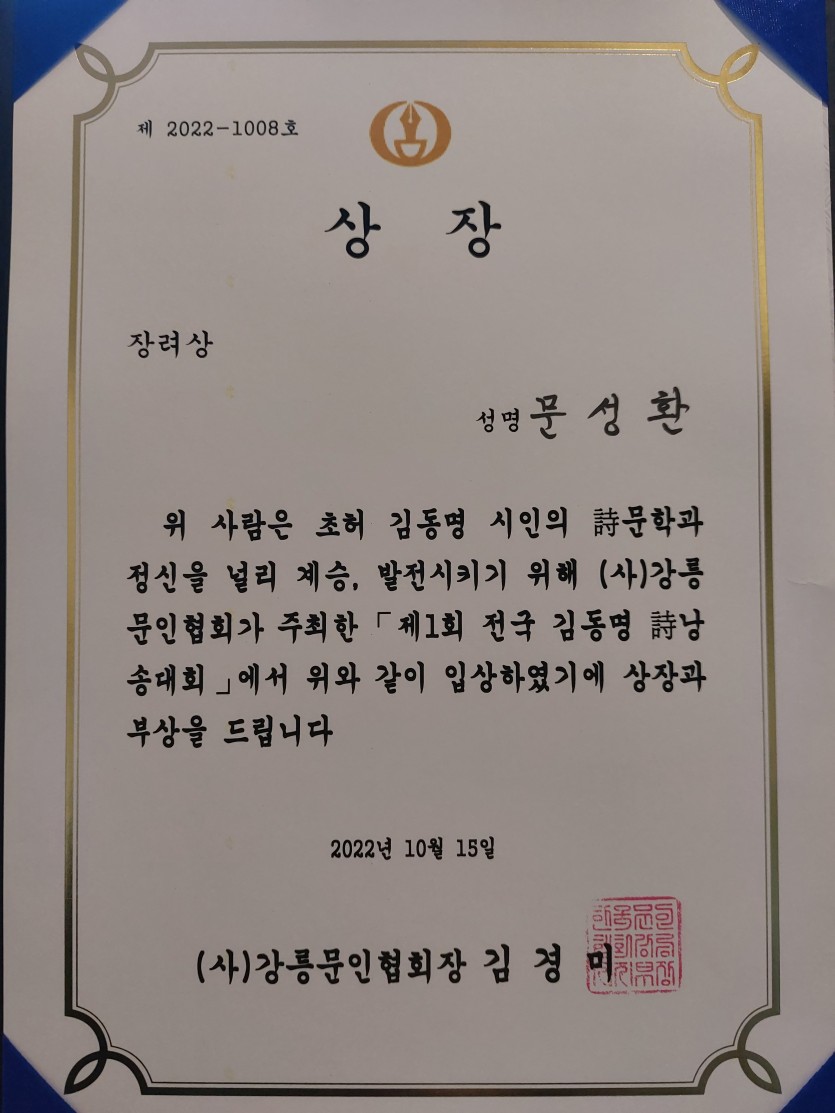 제 2022-1008호
상 장
장려상
성명 문 성 환
위 사람은 초허 김동명 시인의 詩문학과
정신을 널리 계승, 발전시키기 위해 (사)강릉
문인협회가 주최한 「제1회 전국 김동명 詩낭
송대회」에서 위와 같이 입상하였기에 상장과
부상을 드립니다
2022년 10월 15일
(사)강릉문인협회장 김 경 미